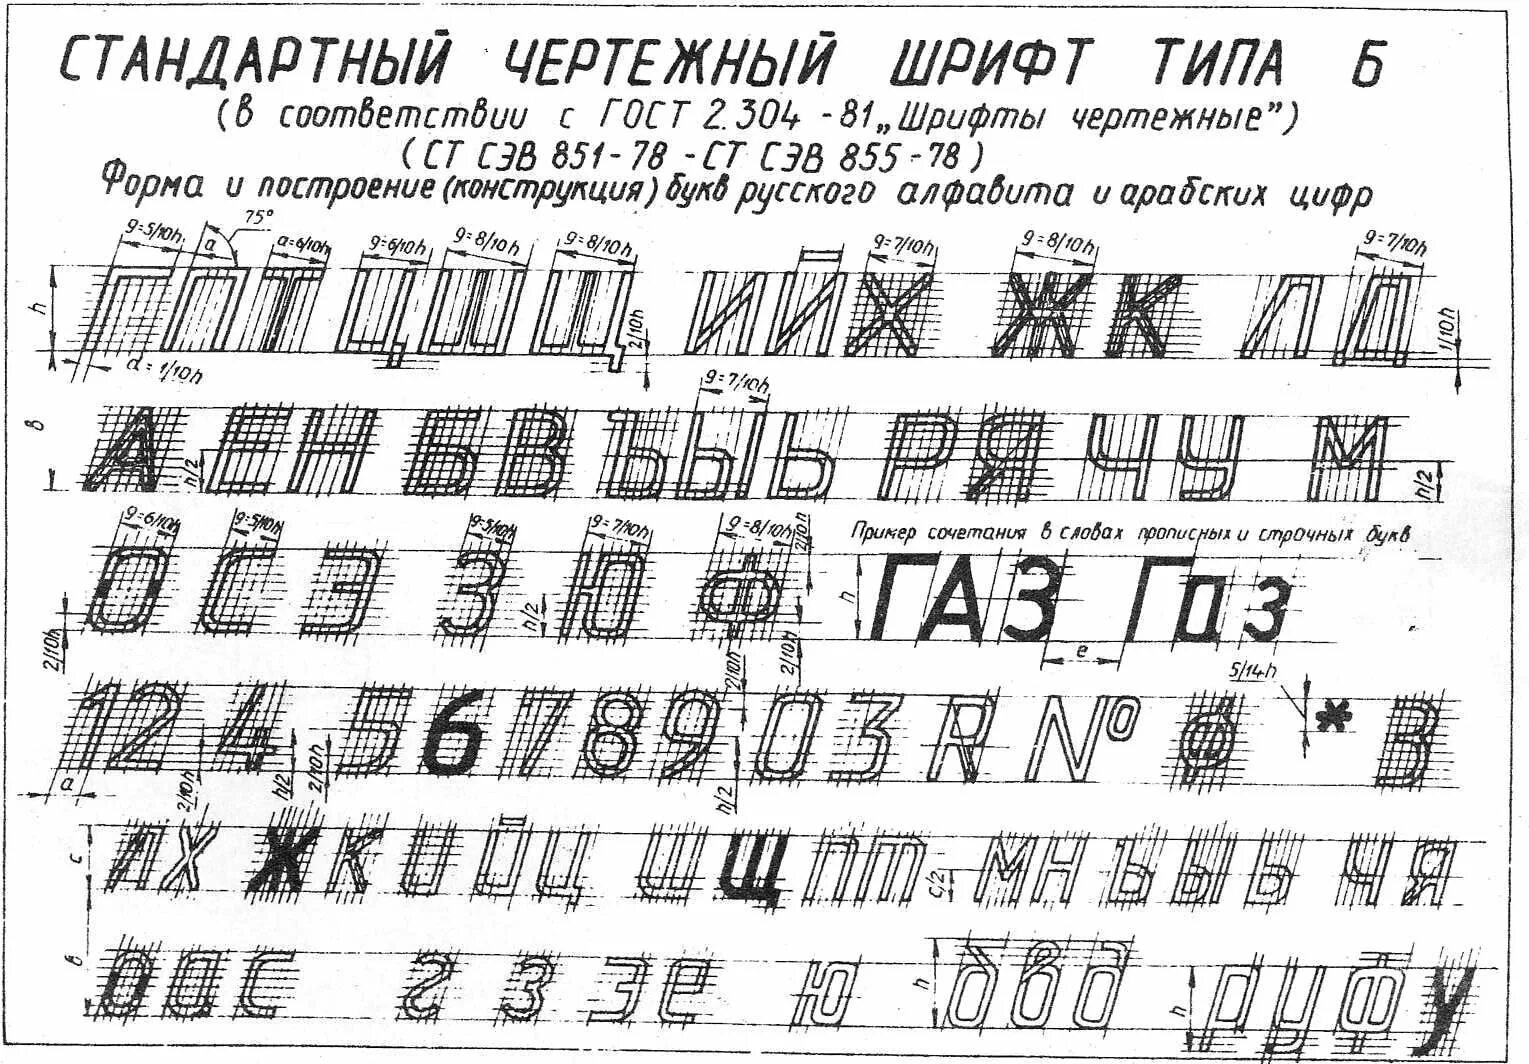 СТАНДАРТНЫЙ ЧЕРТЕЖНЫЙ ШРИФТ ТИПА Б
(в соответствии с ГОСТ 2.304 - 81 „Шрифты чертежные”)
(СТ СЭВ 851-78 - СТ СЭВ 855-78)
Форма и построение (конструкция) букв русского алфавита и арабских цифр
g=5/10h a 75° a=6/10h g=6/10h g=8/10h g=8/10h g=7/10h g=8/10h g=7/10h
h Г П Т Ц Ш Щ 2/10h И Й Х Ж К Л Д 1/10h
d=1/10h g=7/10h
в А Е Н Б В Ъ Ы Ь Р Я Ч У М
h/2 h/2
g=6/10h g=5/10h g=5/10h g=7/10h g=8/10h 2/10h Пример сочетания в словах прописных и строчных букв
О С Э З h/2 Ю Ф h ГАЗ Газ
2/10h 2/10h 2/10h e 5/14h
1 2 4 5 6 7 8 9 0 3 R № ф * В
a 2/10h h/2 2/10h h/2
c л х ж к и й ц ш щ п т c/2 м н ъ ы ь ч я
в о а с г з э е ю h б в д h р у ф у